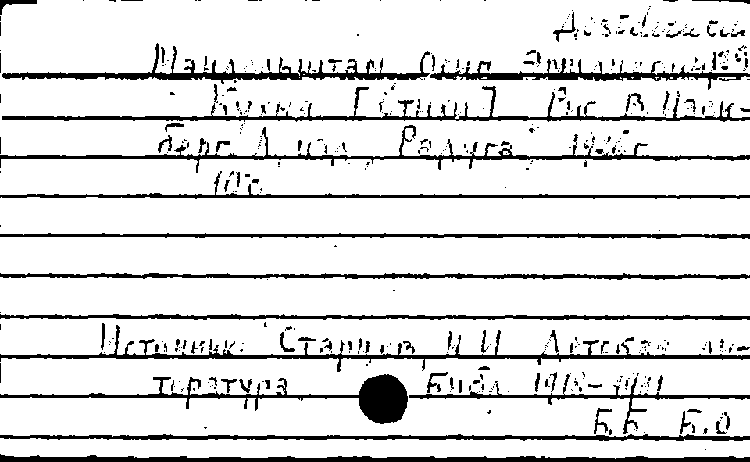 Мандельштам Осип Эмильевич, 189
Кухня [Стихи] Рис В. Изен-
берг. Л. изд, "Радуга", 1926 г.
10 с
Источник: Старцев И. И. Детская ли-
тература. Библ. 1918-1931
Б.Б. Б.О